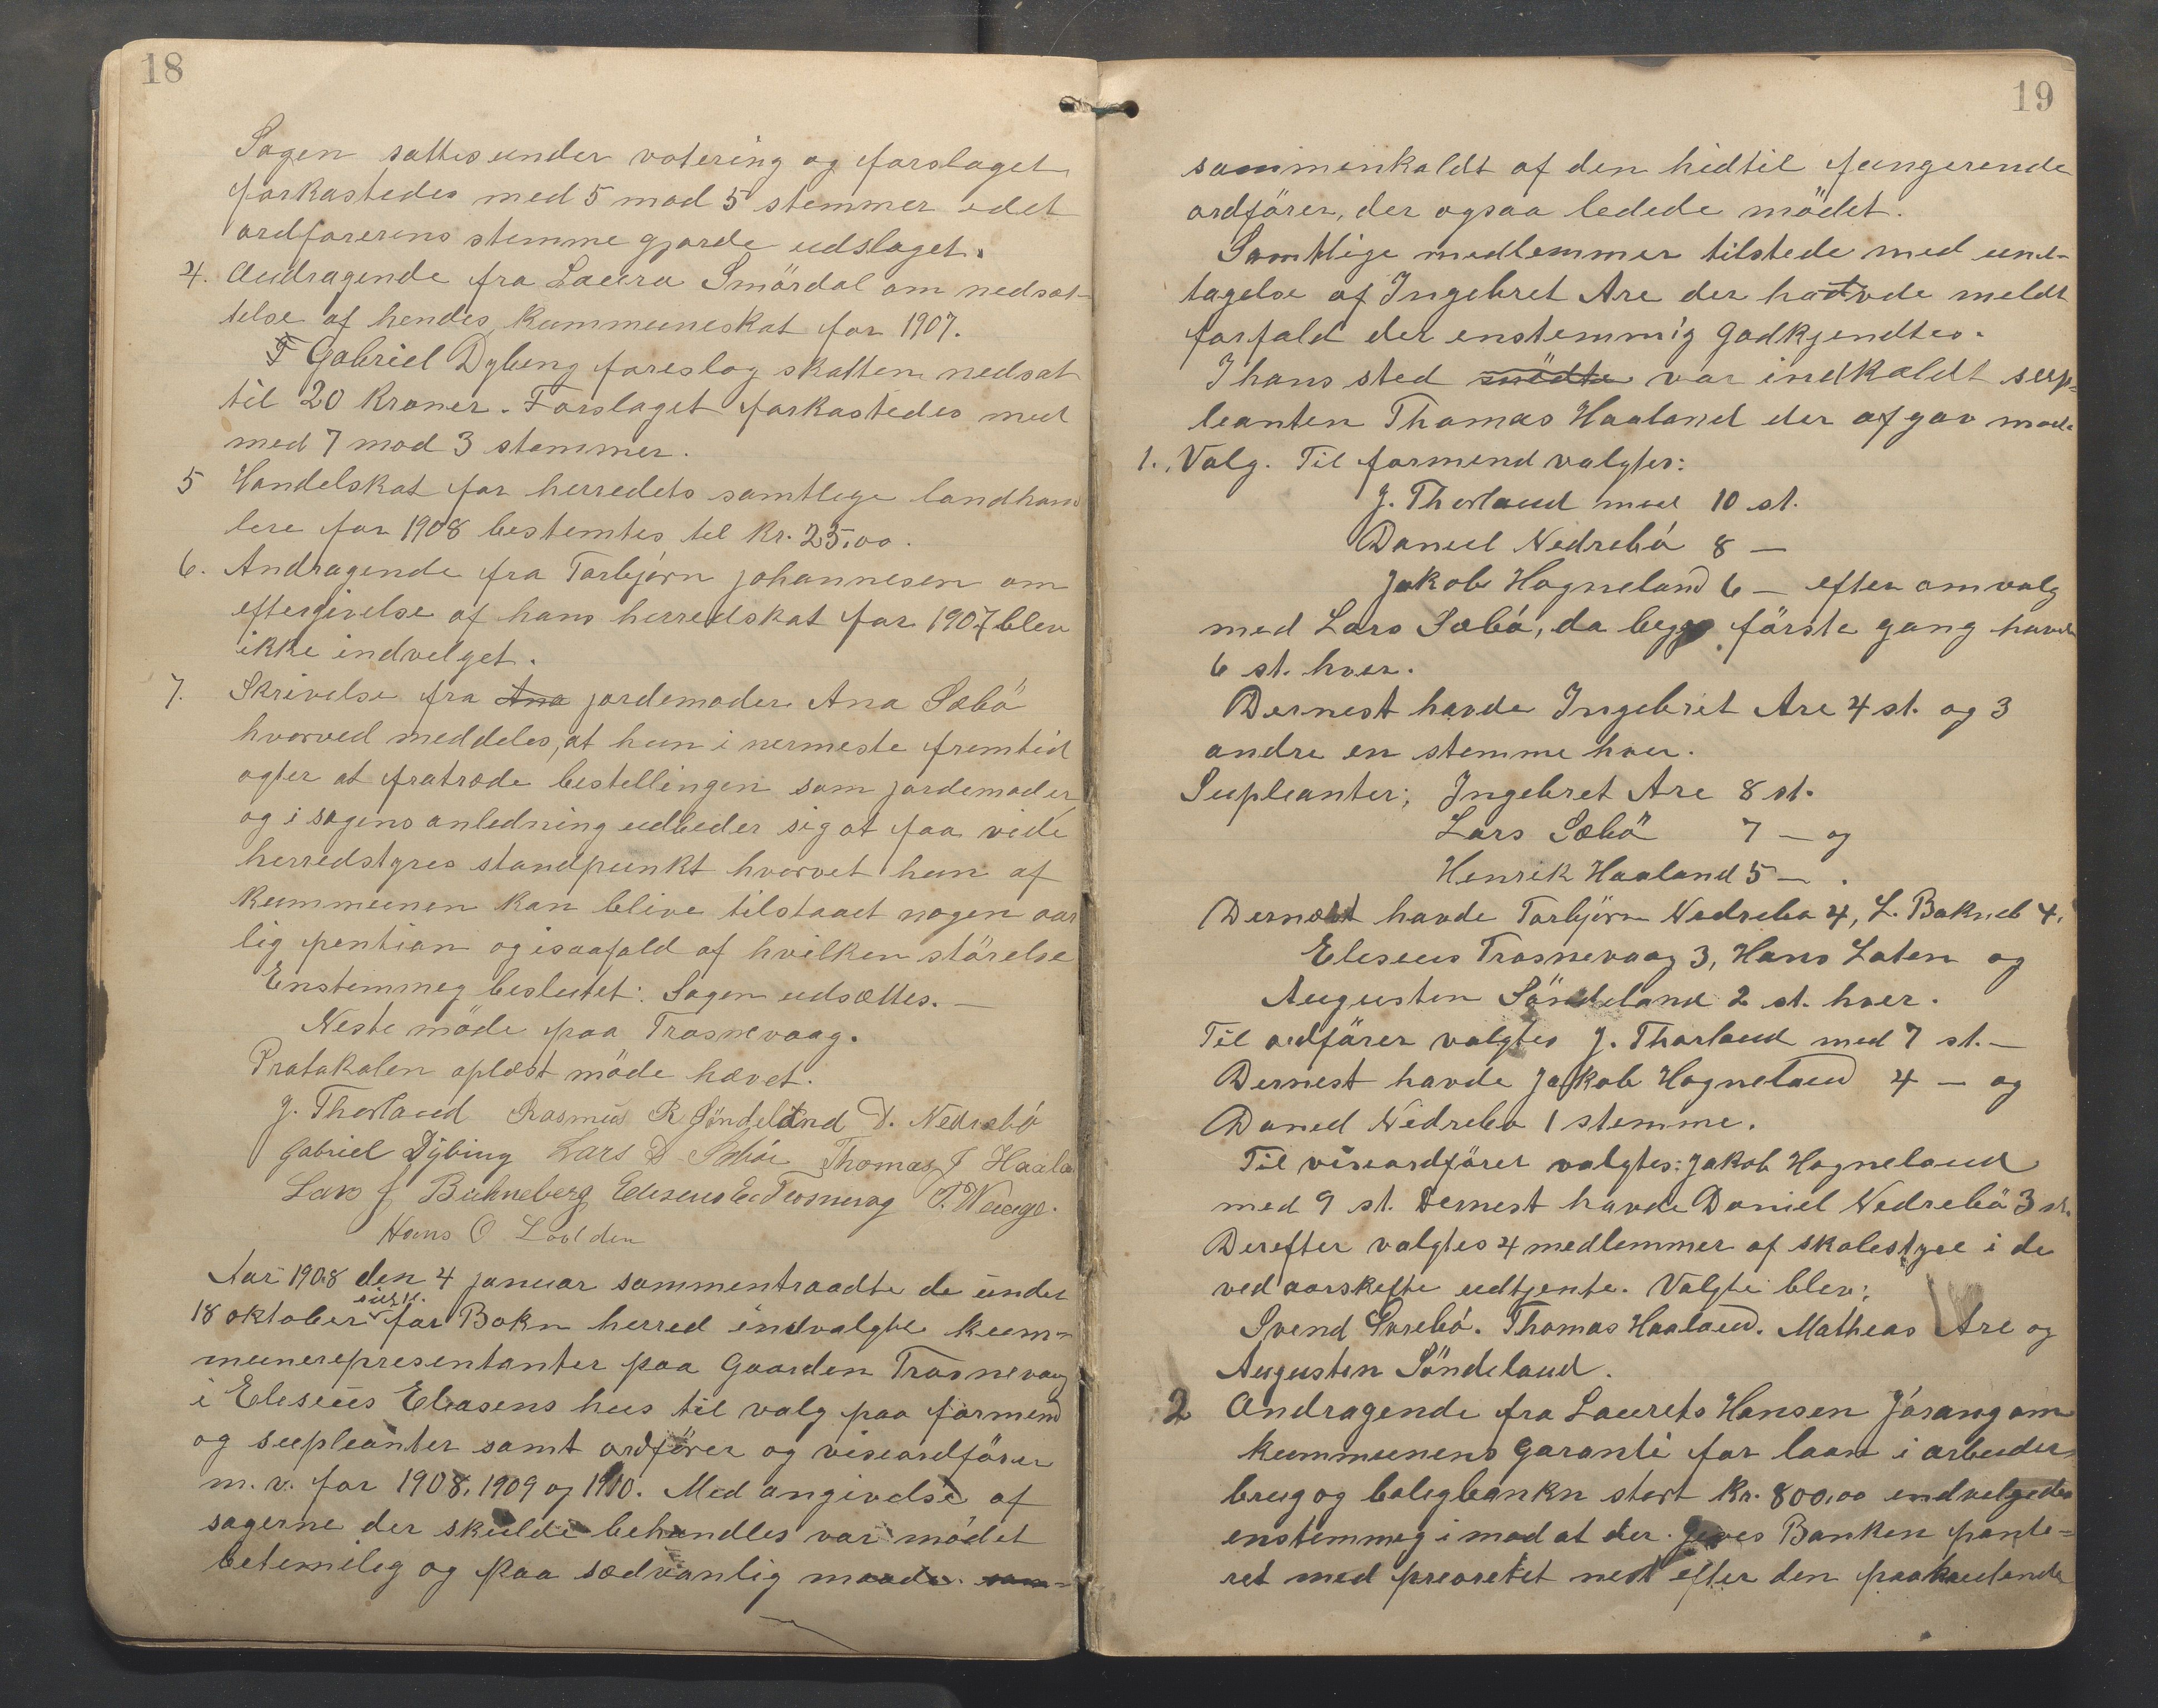 18
Sagen sattes under votering og forslaget
forkastedes med 5 mod 5 stemmer idet
ordførerens stemme gjorde udslaget.
4. Andragende fra Laura Smördal om nedsæt-
telse af hendes kummuneskat for 1907.
Gabriel Dybing foreslog skatten nedsat
til 20 kroner. Forslaget forkastedes med
med 7 mod 3 stemmer.
5 Handelskat for herredets samtlege landhand
lere for 1908 bestemtes til kr. 25.00.
6. Andragende fra Torbjörn Johannesen om
eftergivelse af hans herredskat for 1907 blev
ikke indvelget.
7. Skrivelse fra Ana jordemoder Ana Sæbö
hvorved meddeles, at hun i nermeste fremtid
agter at fratræde bestellingen som jordemoder
og i sagens anledning udbeder sig at faa vide
herredstyres standpunkt hvorvet hun af
kummunen kan blive tilstaaet nogen aar
lig pention og isaafald af hvilken störelse
Enstemmeg beslutet: Sagen udsættes. —
Neste möde paa Trosnevaag.
Protokolen oplæst möde hævet.
J. Thorland Rasmus R Söndeland D. Nedrebö
Gabriel Dybing Lars D Sæböe Thomas J Haala
Lars J Bukneberg Eliseus E. Trosnavag T. Waage.
Hans O Loolden
Aar 1908 den 4 januar sammentraadte de under
sidstl.
18 oktober for Bokn herred indvalgte kum-
munerepresentanter paa Gaarden Trosnevaag
i Eliseus Eliasens hus til valg paa formend
og supleanter samt ordförer og viseordförer
m.v. for 1908, 1909 og 1910. Med angivelse af
sagerne der skulde behandles var mödet
betemileg og paa sædvanlig maade sam-
19
sammenkaldt af den hidtil fungerende
ordförer, der ogsaa ledede mödet.
Samtlige medlemmer tilstede med und-
tagelse af Ingebret Are der havde meldt
forfald der enstemmig godkjendtes.
I hans sted mödte var indkaldt sup-
leanten Thomas Haaland der afgav mode
1. Valg. Til formend valgtes:
J. Thorland med 10 st.
Daniel Nedrebö 8 —
Jakob Hogneland 6 — efter omvalg
med Lars Sæbö, da begge förste gang havde
6 st. hver.
Dernest havde Ingebrit Are 4 st. og 3
andre en stemme hver.
Supleanter; Ingebret Are 8 st.
Lars Sæbö 7 — og
Henrik Haaland 5 — .
Dernæst havde Torbjörn Nedrebø 4, L. Bokneb 4,
Eleseus Trosnevaag 3, Hans Laten og
Augusten Söndeland 2 st. hver.
Til ordförer valgtes J. Thorland med 7 st. —
Dernest havde Jakob Hogneland 4 — og
Daniel Nedrebø 1 stemme.
Til viseordförer valgtes: Jakob Hogneland
med 9 st. Dernest havde Daniel Nedrebö 3 st.
Derefter valgtes 4 medlemmer af skolestyre i de
ved aarskefte udtjente. Valgte blev;
Svend Sørebö. Thomas Haaland. Matheas Are og
Augusten Söndeland.
2 Andragende fra Laurets Hansen Jörang om
kummunens Garanti for laan i arbeider
brug og boligbankn stort kr. 800.00 endvelgedes
enstemmeg i mod at der gives Banken pante-
ret med preoretet nest efter den paahvilende